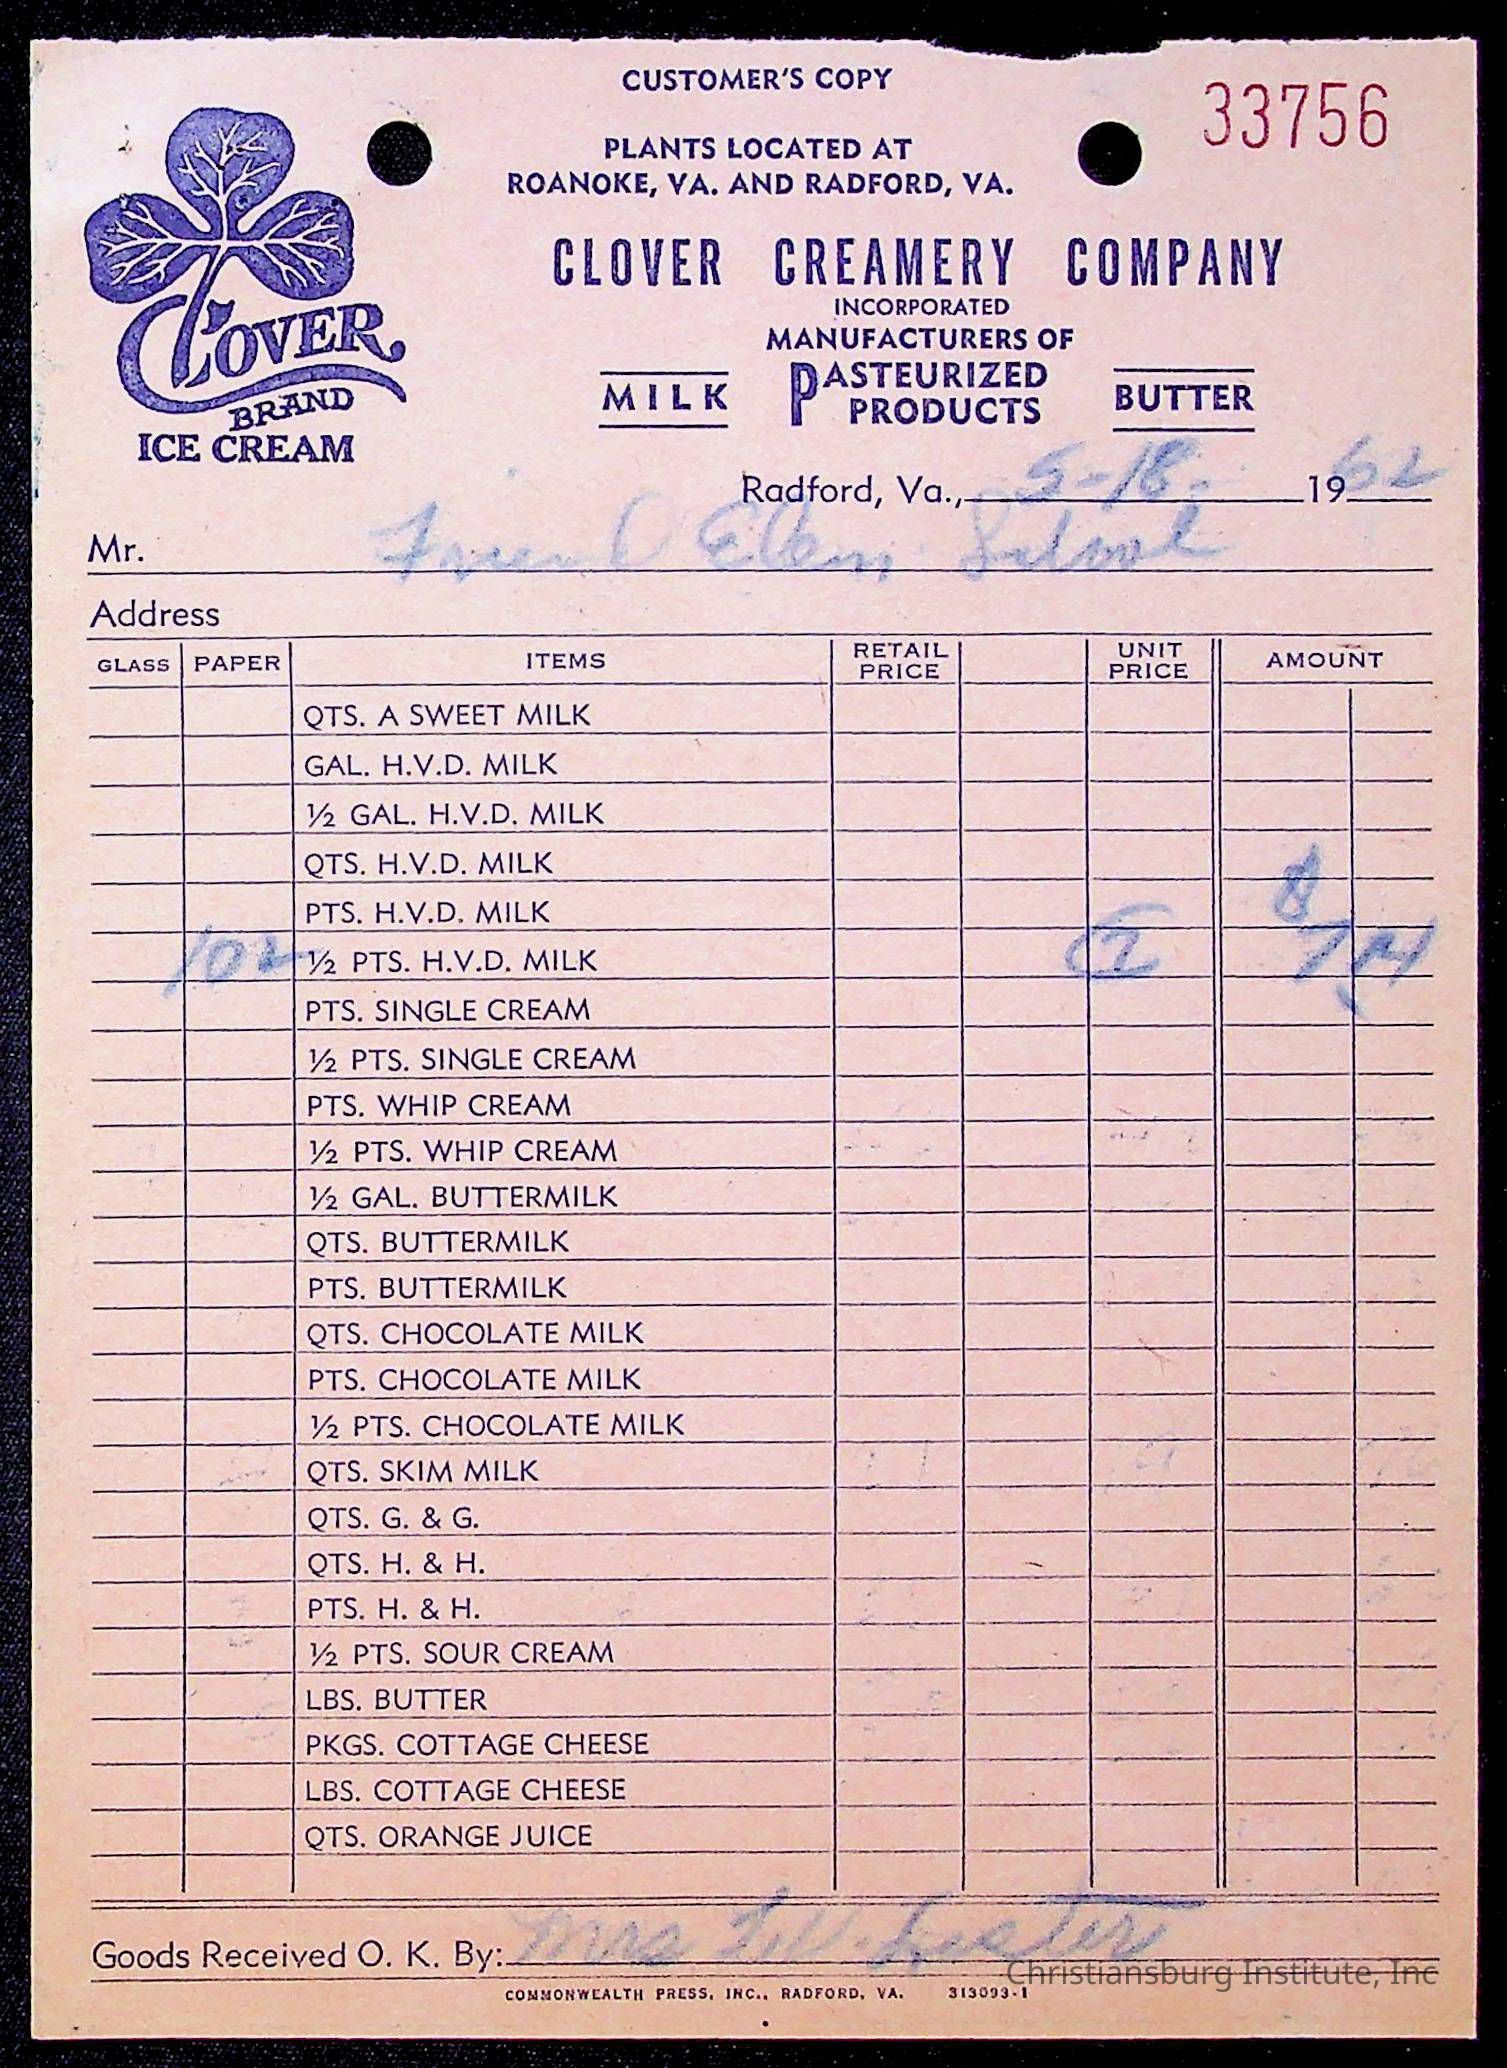 CUSTOMER'S COPY
33756
PLANTS LOCATED AT
ROANOKE, VA. AND RADFORD, VA.
CLOVER CREAMERY COMPANY
INCORPORATED
MANUFACTURERS OF
MILK PASTEURIZED PRODUCTS BUTTER
CLOVER
BRAND
ICE CREAM
Radford, Va., 5-18- 1962
Mr. Friend Elem School
Address
GLASS PAPER ITEMS RETAIL PRICE UNIT PRICE AMOUNT
QTS. A SWEET MILK
GAL. H.V.D. MILK
½ GAL. H.V.D. MILK
QTS. H.V.D. MILK
PTS. H.V.D. MILK $
102 ½ PTS. H.V.D. MILK 7 7 14
PTS. SINGLE CREAM
½ PTS. SINGLE CREAM
PTS. WHIP CREAM
½ PTS. WHIP CREAM
½ GAL. BUTTERMILK
QTS. BUTTERMILK
PTS. BUTTERMILK
QTS. CHOCOLATE MILK
PTS. CHOCOLATE MILK
½ PTS. CHOCOLATE MILK
QTS. SKIM MILK
QTS. G. & G.
QTS. H. & H.
PTS. H. & H.
½ PTS. SOUR CREAM
LBS. BUTTER
PKGS. COTTAGE CHEESE
LBS. COTTAGE CHEESE
QTS. ORANGE JUICE
Goods Received O. K. By: Mrs
Christiansburg Institute, Inc
COMMONWEALTH PRESS, INC., RADFORD, VA. 313093-1